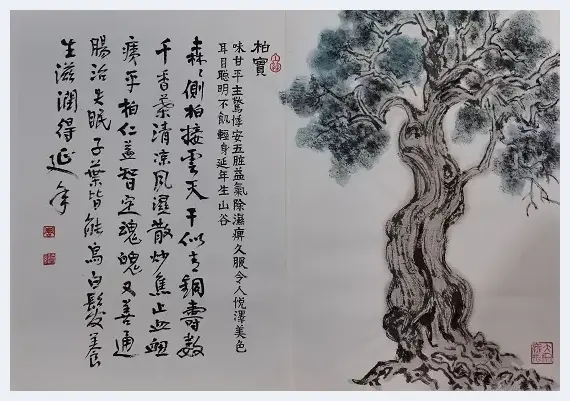 柏實
味甘平主驚悸安五脏益氣除濕痹久服令人悅澤美色
耳目聰明不飢輕身延年生山谷
森〻側柏接雲天干似青銅壽數
千香葉清凉風濕散炒焦止血衄
痢平柏仁益智定魂魄又善通
腸治失眠子葉皆能烏白髮養
生滋潤得延年